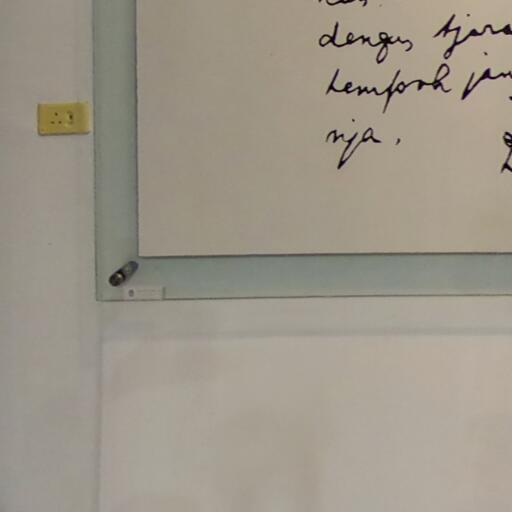 dengan tjara
tempoh jang
nja.